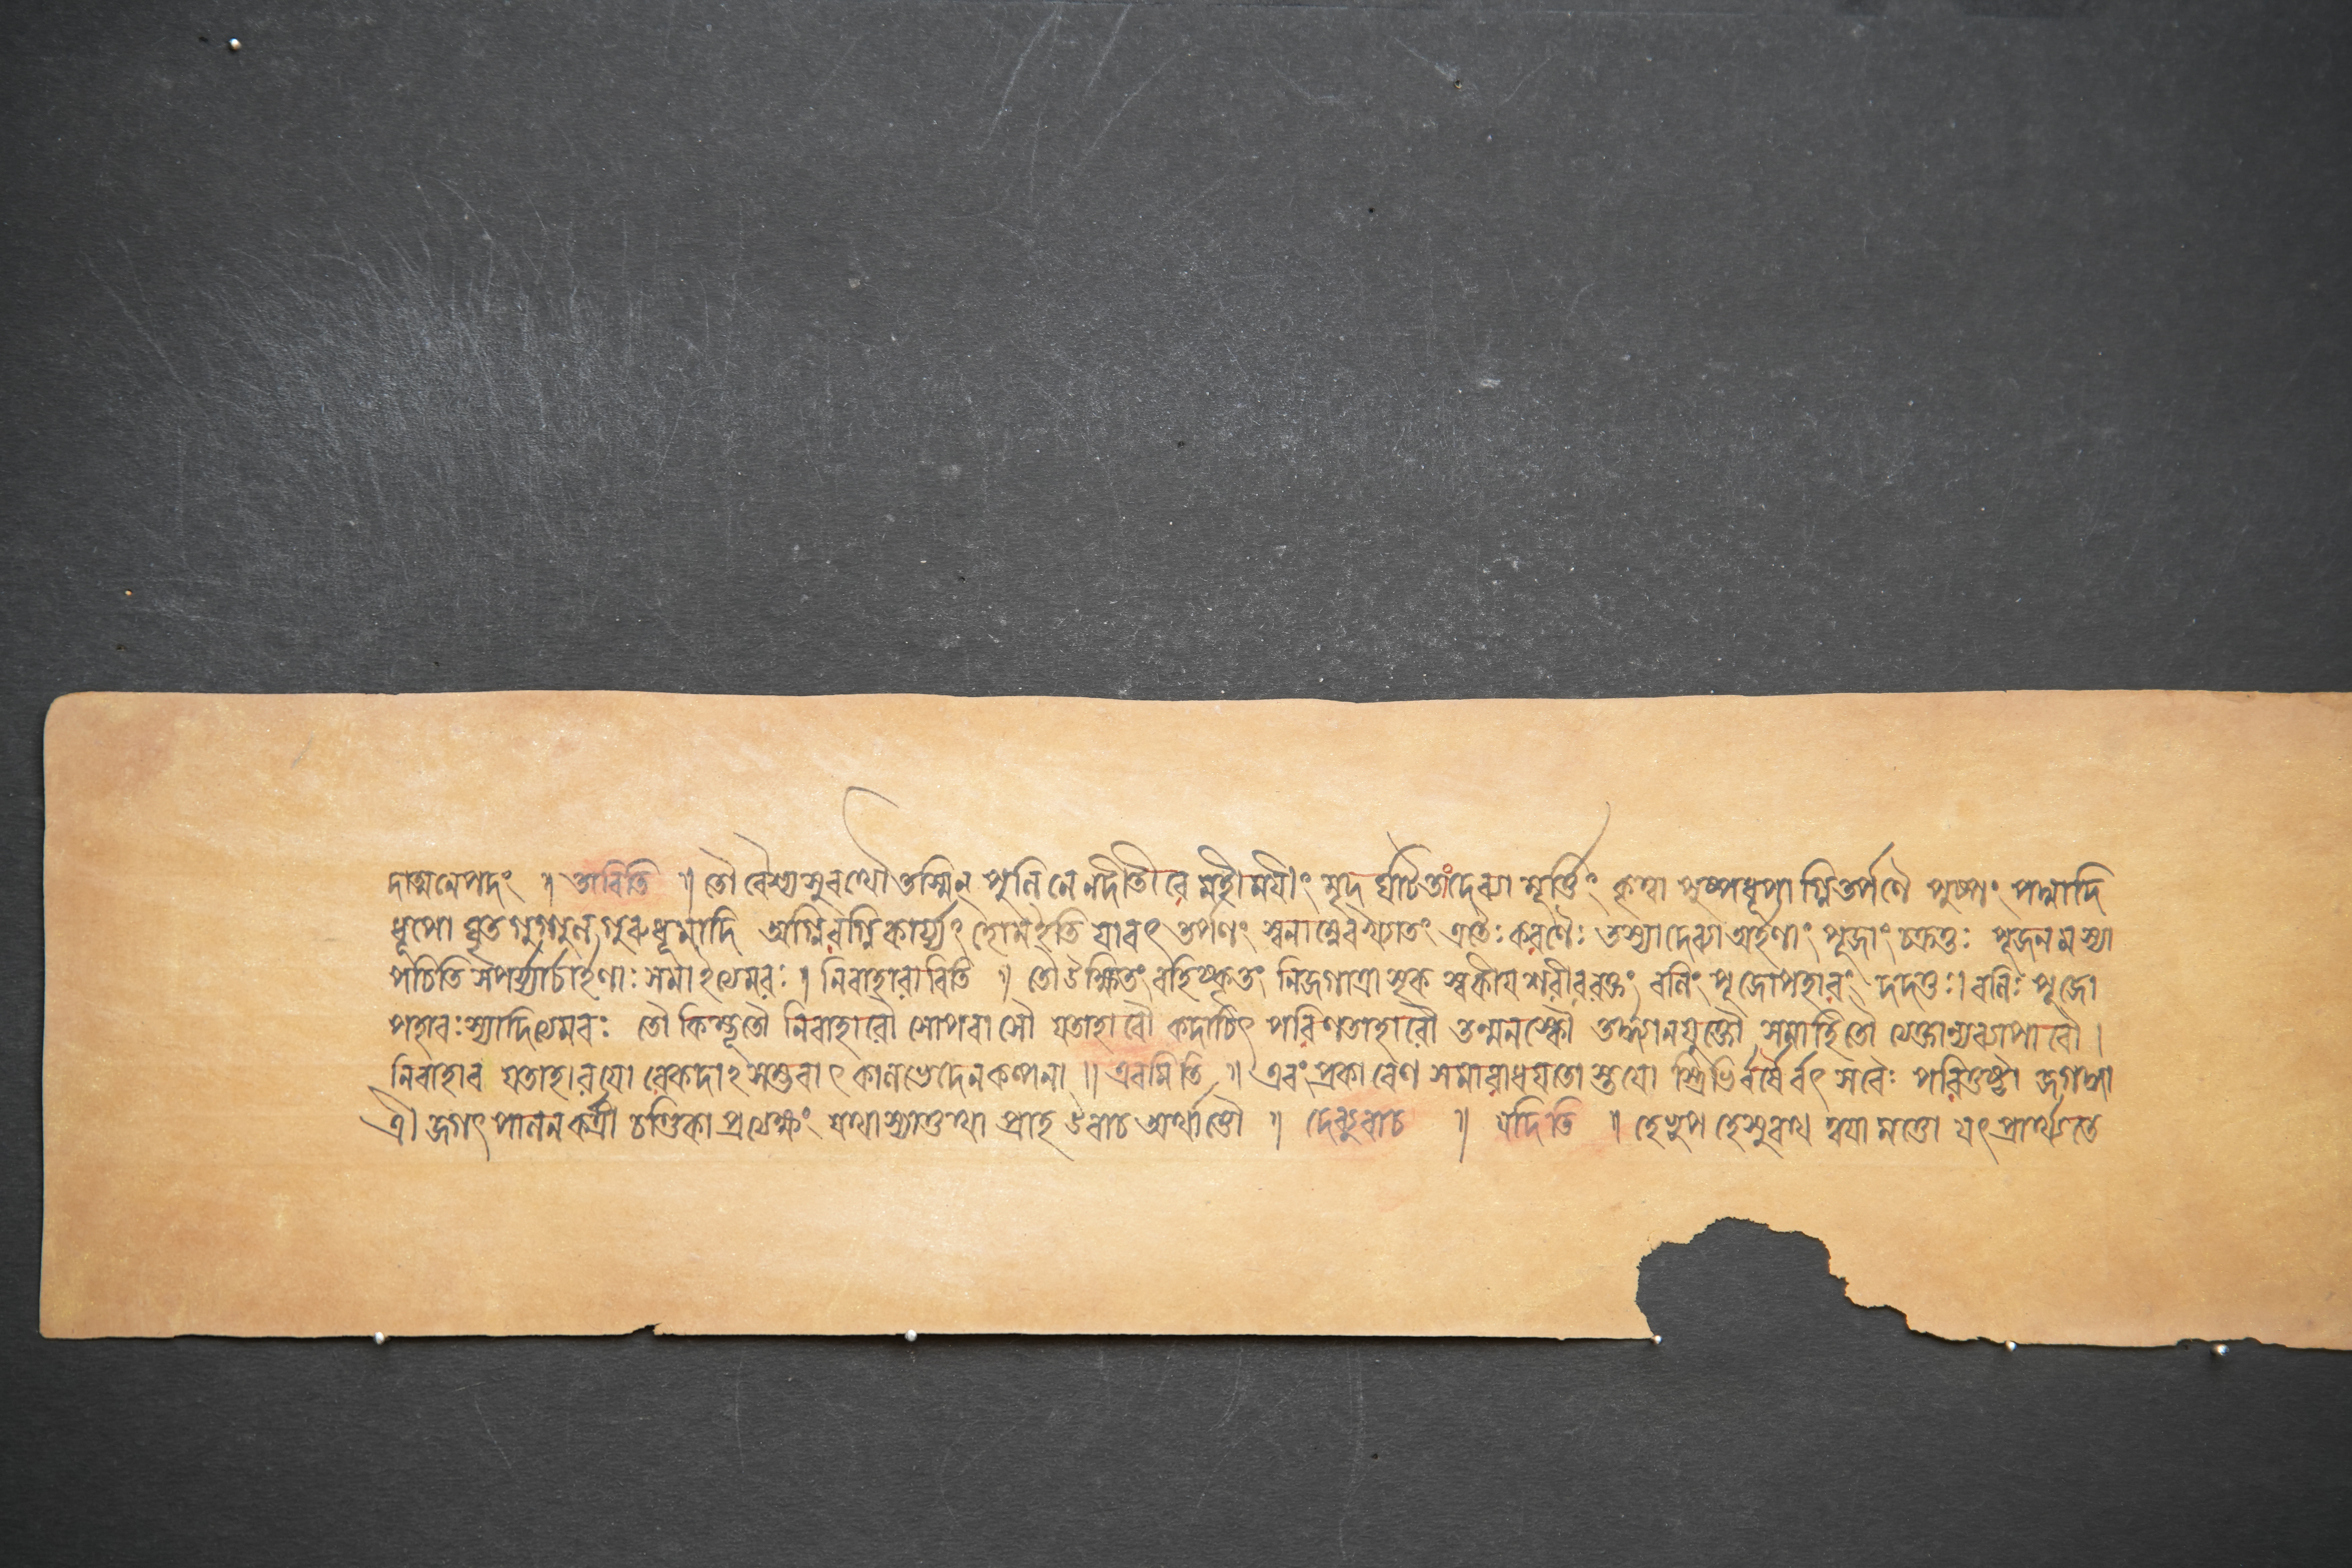 দাত্মনেপদং ॥ তাবিতি ॥ তৌ বৈশ্যসুরথৌ তস্মিন পুলিনে নদীতীরে মহীময়ীং মৃদ ঘটিতাং দেব্যা মূর্ত্তিং কৃত্বা পুষ্পধূপাগ্নিতর্পণৈ পুষ্পং পদ্মাদি
ধূপো ঘৃত গুগ্গুলগুরুধূমাদি অগ্নিরগ্নিকার্য্যং হোমইতি যাবৎ তর্পণং এতৈঃ করণৈঃ তস্যাদেব্যা অর্হণাং পূজাং চক্রতুঃ পূজনমস্যা
পচিতি সপর্য্যার্চার্হণাঃ সমাইত্যমরঃ । নিরাহারাবিতি ॥ তৌ উক্ষিতং বহিষ্কৃতং নিজগাত্রাসৃক স্বকীয়শরীররক্তং বলিং পূজোপহারং দদতুঃ। বলিঃ পূজো
পহারঃস্যাদিত্যমরঃ তৌ কিম্ভূতৌ নিরাহারৌ সোপবাসৌ যতাহারৌ কদাচিৎ পরিণতাহারৌ তন্মনস্কৌ তর্দ্ধ্যানযুক্তৌ সমাহিতৌ ত্যক্তান্যব্যাপারৌ ।
নিরাহার যতাহারয়ো রেকদাই সম্ভবাৎ কালভেদেনকল্পনা ॥ এবমিতি ॥ এবং প্রকারেণ সমারাধয়তো স্তয়ো স্ত্রিভির্বর্ষৈর্বৎসরৈঃ পরিতুষ্টা জগদ্ধা
ত্রী জগৎ পালনকর্ত্রী চণ্ডিকা প্রত্যক্ষং যথাস্যাত্তথা প্রাহ উবাচ অর্থাত্তৌ ॥ দেব্যুবাচ ॥ যদিতি ॥ হেনৃপ হেসুরথ ত্বয়া মত্তো যৎ প্রার্থ্যতে